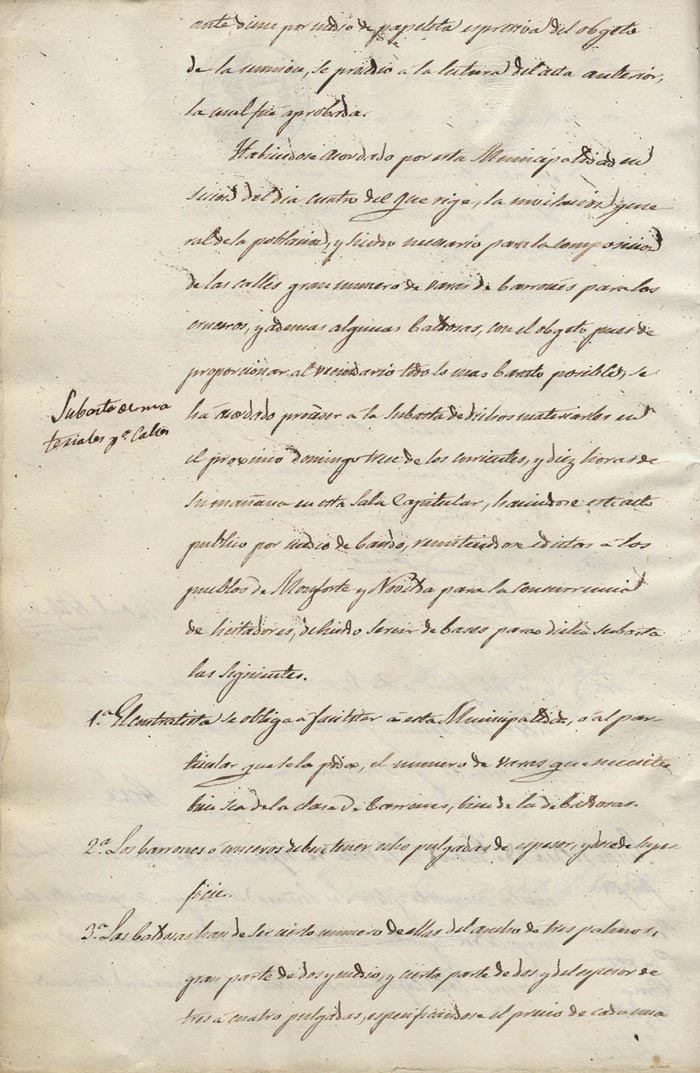 ante diem por medio de papeleta espresiva del obgeto
de la reunion, se procedio a la lectura del acta anterior,
la cual fué aprobada.
Habiendose acordado por esta Municipalidad en
sesion del dia cuatro del que rige, la nivelacion gene
ral de la poblacion, y siendo necesario para la composicion
de las calles gran numero de varas de barrones para los
cruceros, y ademas algunas baldosas, con el obgeto pues de
proporcionar al vecindario todo lo mas barato posible, se
ha acordado proceder a la subasta de dichos materiales en
el proximo domingo trece de los corrientes, y diez horas de
su mañana en esta Sala Capitular, haciendose este acto
publico por medio de bando, remitiendose edictos a los
pueblos de Monforte y Novelda para la concurrencia
de licitadores, debiendo servir de bases para dicha subasta
las siguientes.
Subasta de ma
teriales pª Calles
1.ª El contratista se obliga a facilitar a esta Municipalidad, o al par-
ticular que se la pida, el numero de varas que necesite
bien sea de la clase de barrones, bien de la de baldosas.
2.ª Los barrones o cruceros deben tener ocho pulgadas de espesor, y doce de super
ficie.
3.ª Las baldosas han de ser cierto numero de ellas del ancho de tres palmos,
gran parte de dos y medio, y cierta parte de dos y del espesor de
tres a cuatro pulgadas, especificandose el precio de cada una